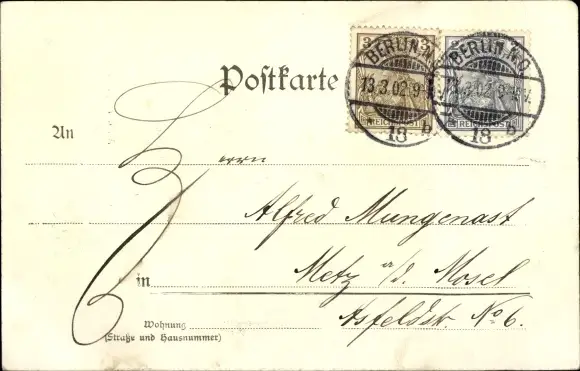 3 3
REICHSPOST REICHSPOST
BERLIN, N.O. BERLIN, N.O.
13.3.02.9 13.3.02.9
18 b 18 b
Postkarte
An
Herrn
Alfred Mungenast
in Metz a/d. Mosel
Asfeldstr. No 6.
Wohnung
(Straße und Hausnummer)